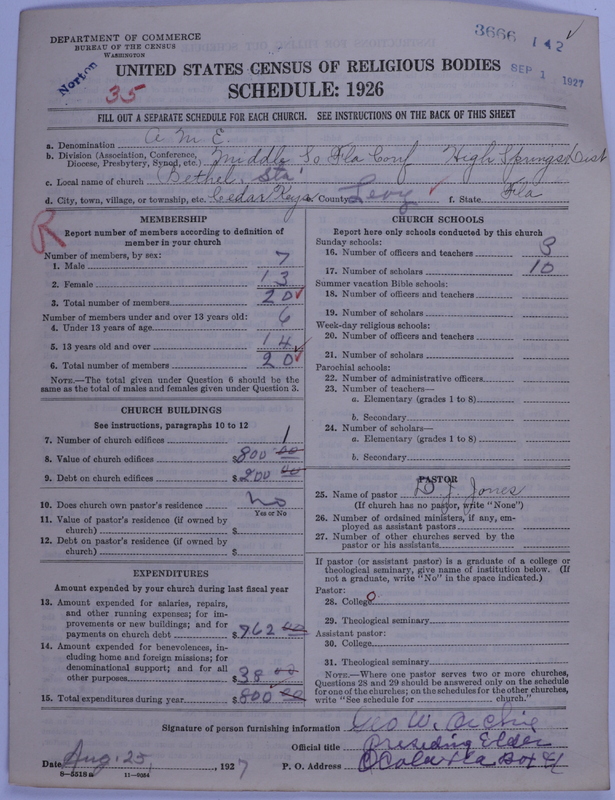 DEPARTMENT OF COMMERCE
BUREAU OF THE CENSUS
WASHINGTON
Norton
35
3666 142
SEP 1 1927
UNITED STATES CENSUS OF RELIGIOUS BODIES
SCHEDULE: 1926
FILL OUT A SEPARATE SCHEDULE FOR EACH CHURCH. SEE INSTRUCTIONS ON THE BACK OF THIS SHEET
a. Denomination A M E.
b. Division (Association, Conference, Diocese, Presbytery, Synod, etc.) Middle So Fla Conf High Springs Dist
c. Local name of church Bethel, Sta
d. City, town, village, or township, etc. Cedar Keys e. County Levy f. State Fla
MEMBERSHIP
Report number of members according to definition of
member in your church
Number of members, by sex:
1. Male 7
2. Female 13
3. Total number of members 20
Number of members under and over 13 years old:
4. Under 13 years of age 6
5. 13 years old and over 14
6. Total number of members 20
NOTE.—The total given under Question 6 should be the
same as the total of males and females given under Question 3.
CHURCH BUILDINGS
See instructions, paragraphs 10 to 12
7. Number of church edifices 1
8. Value of church edifices $800 00
9. Debt on church edifices $200 00
10. Does church own pastor's residence No
Yes or No
11. Value of pastor's residence (if owned by
church) $
12. Debt on pastor's residence (if owned by
church) $
EXPENDITURES
Amount expended by your church during last fiscal year
13. Amount expended for salaries, repairs,
and other running expenses; for im-
provements or new buildings; and for
payments on church debt $762 00
14. Amount expended for benevolences, in-
cluding home and foreign missions; for
denominational support; and for all
other purposes $38 00
15. Total expenditures during year $800 00
CHURCH SCHOOLS
Report here only schools conducted by this church
Sunday schools:
16. Number of officers and teachers 3
17. Number of scholars 10
Summer vacation Bible schools:
18. Number of officers and teachers
19. Number of scholars
Week-day religious schools:
20. Number of officers and teachers
21. Number of scholars
Parochial schools:
22. Number of administrative officers
23. Number of teachers—
a. Elementary (grades 1 to 8)
b. Secondary
24. Number of scholars—
a. Elementary (grades 1 to 8)
b. Secondary
PASTOR
25. Name of pastor D. J. Jones
(If church has no pastor, write "None")
26. Number of ordained ministers, if any, em-
ployed as assistant pastors
27. Number of other churches served by the
pastor or his assistants
If pastor (or assistant pastor) is a graduate of a college or
theological seminary, give name of institution below. (If
not a graduate, write "No" in the space indicated.)
Pastor:
28. College
29. Theological seminary
Assistant pastor:
30. College
31. Theological seminary
NOTE.—Where one pastor serves two or more churches,
Questions 28 and 29 should be answered only on the schedule
for one of the churches; on the schedules for the other churches,
write "See schedule for church."
Signature of person furnishing information Geo W. Archie
Official title Presiding Elder
Date Aug. 25, 1927 P. O. Address Ocala Fla Box
8-5518a 11-9054